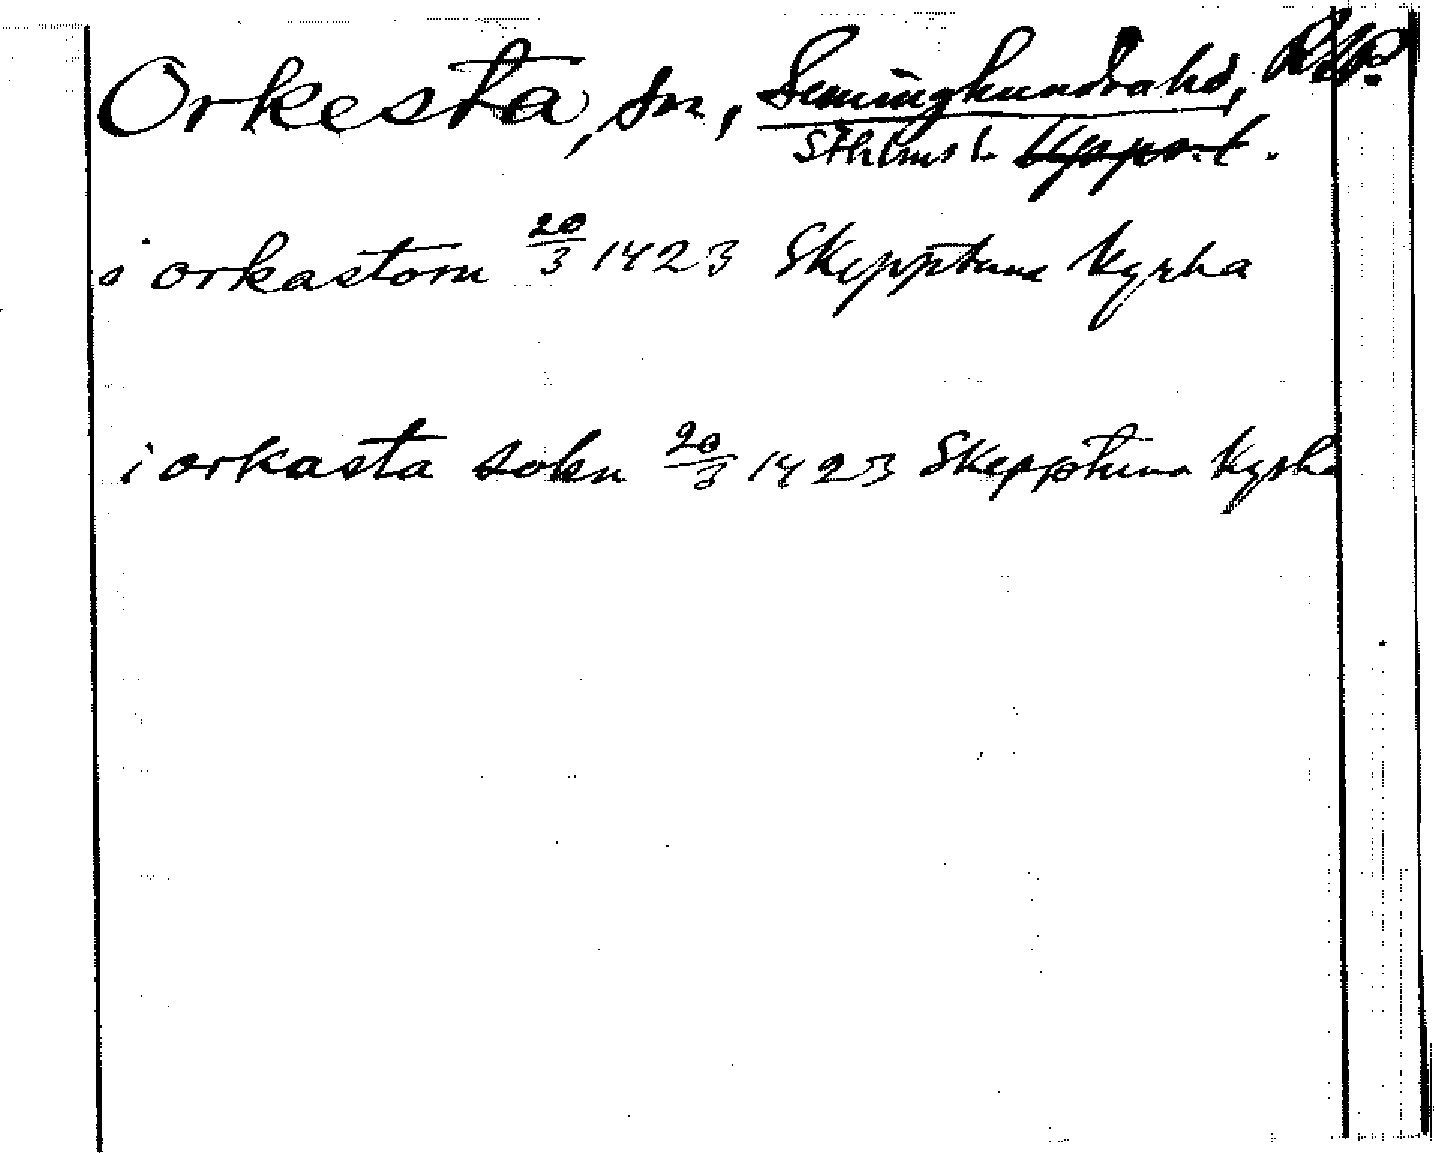 Orkesta, sn, Seminghundra hd,
Sthlms l.
i orkastom 20/3 1423 Skepptuna kyrka
i orkasta sokn 20/3 1423 Skepptuna kyrka